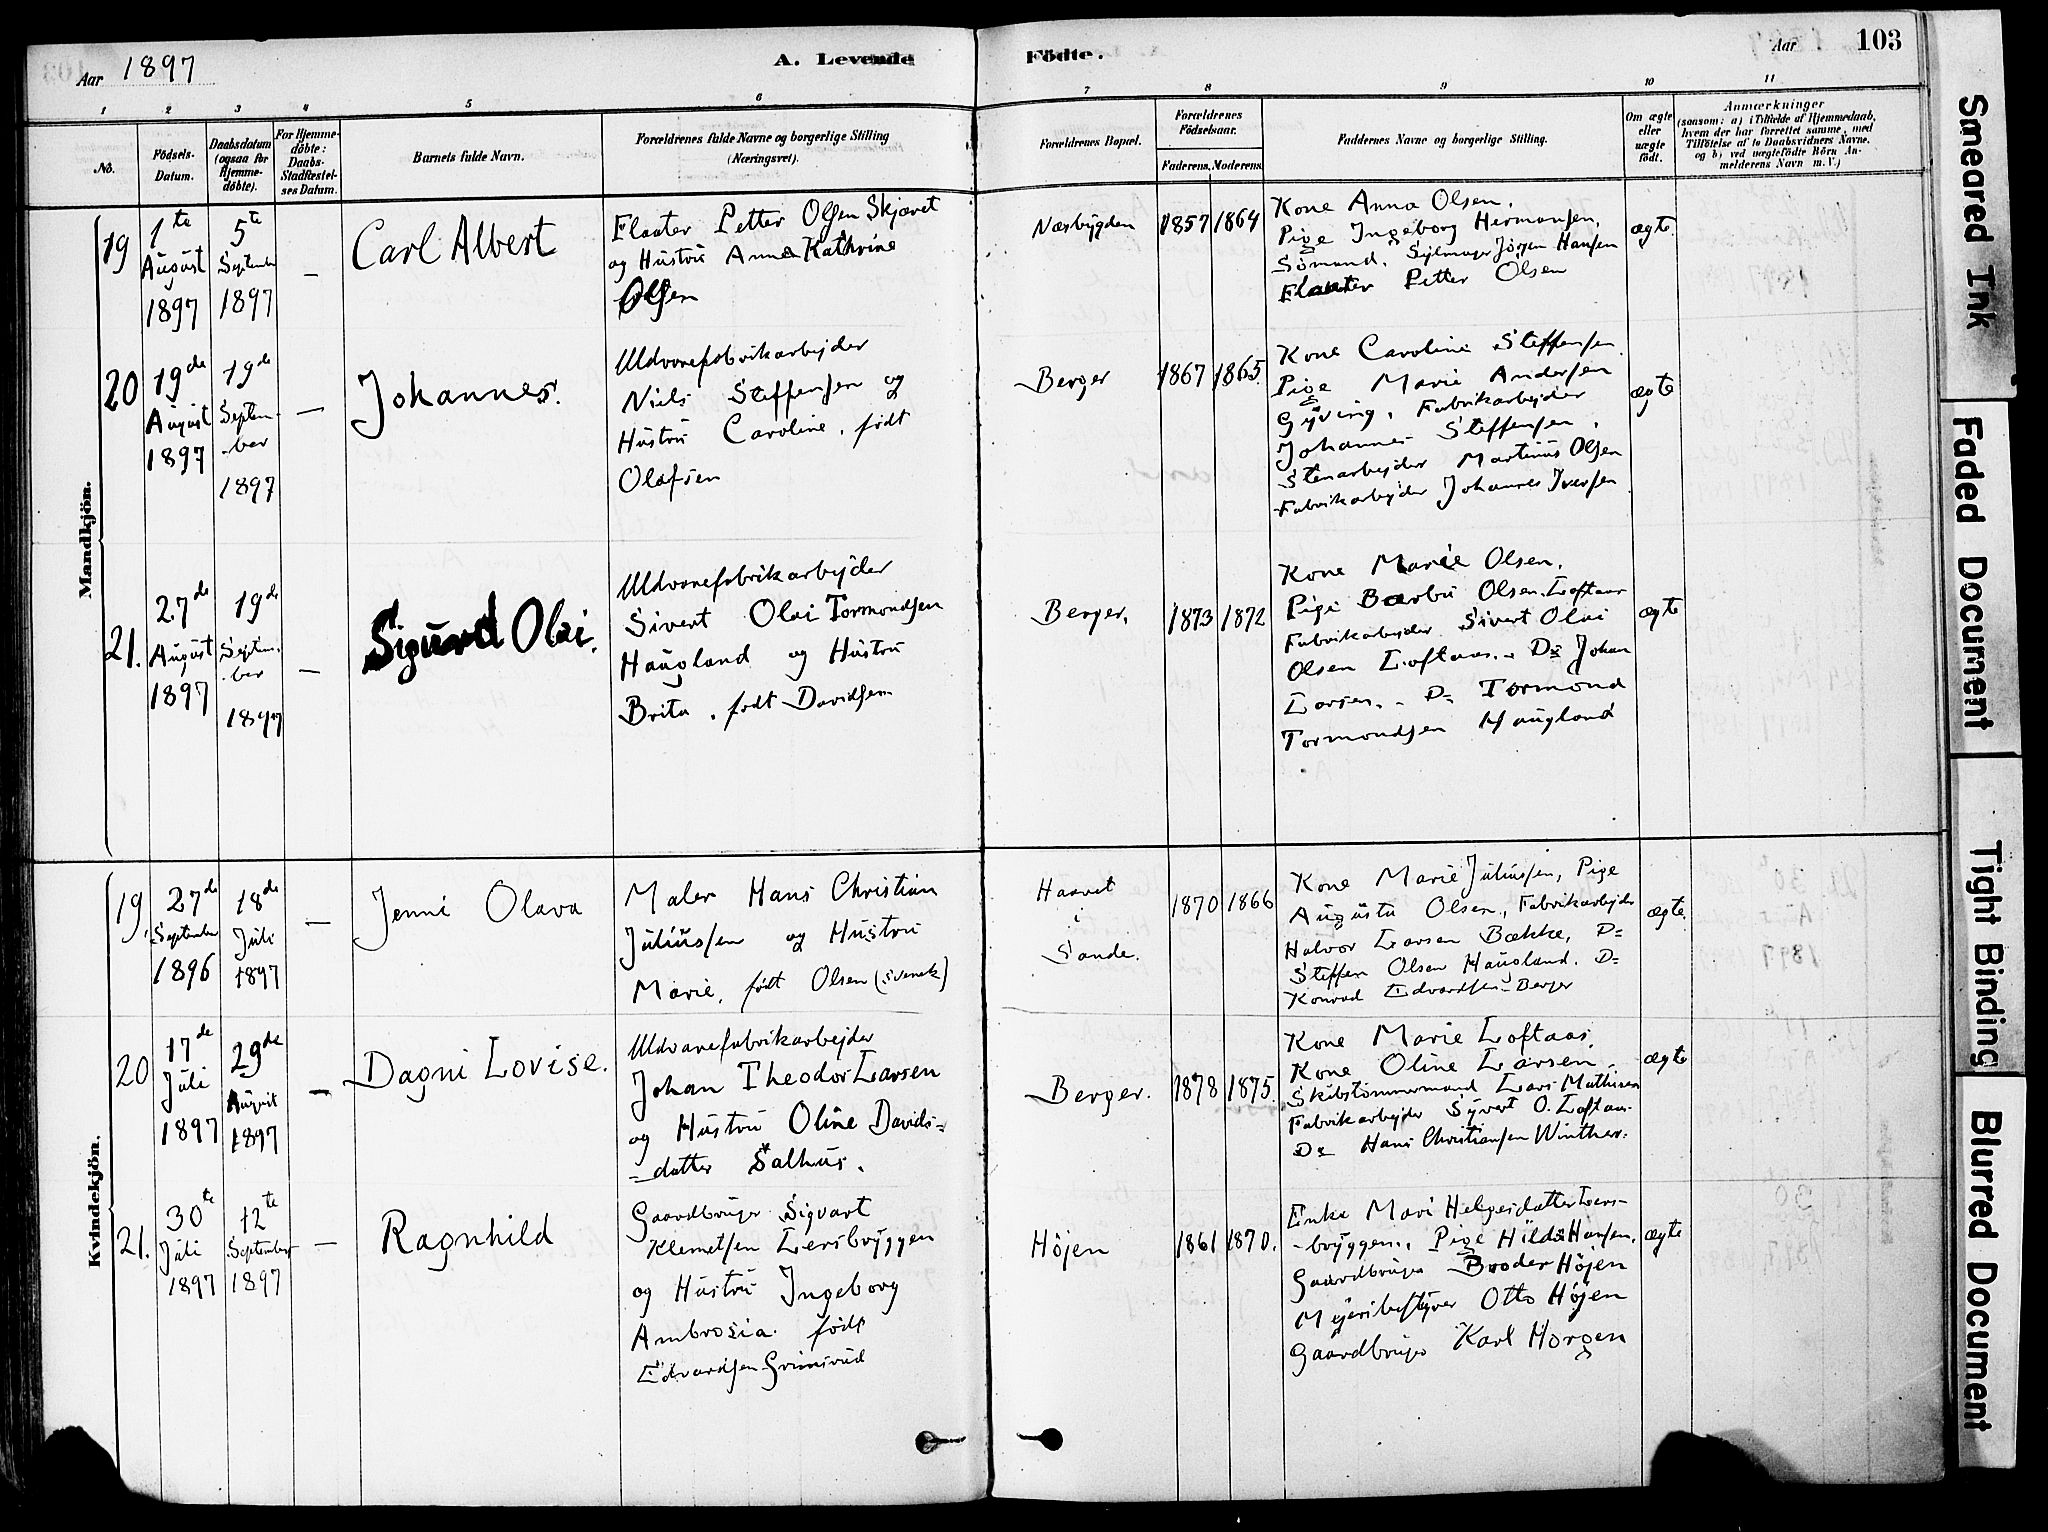 Aar 1897
A. Levende
Födte.
Aar
103
1 2 3 4 5 6 7 8 9 10 11
No.
Födsels-
Datum.
Daabsdatum
(ogsaa for
Hjemme-
döbte).
For Hjemme-
döbte:
Daabs-
Stadfæstel-
ses Datum.
Barnets fulde Navn.
Forældrenes fulde Navne og borgerlige Stilling
(Næringsvei).
Forældrenes Bopæl.
Forældrenes
Födselsaar.
Faderens. Moderens.
Faddernes Navne og borgerlige Stilling.
Om ægte
eller
uægte
födt.
Anmærkninger
(saasom: a) i Tilfælde af Hjemmedaab,
hvem der har forrettet samme, med
Tilföielse af to Daabsvidners Navne,
og b) ved uægtefödte Börn An-
melderens Navn m. V.)
Mandkjön.
19
1te
August
1897
5te
September
1897
—
Carl Albert
Flaater Petter Olsen Skjævet
og Hustru Anna Kathrine
Olsen
Næsbygden
1857 1864
Kone Anna Olsen.
Pige Ingeborg Hermansen,
Sömand. Sejlmager Jörgen Hansen
Flaater Petter Olsen
ægte.
20
19de
August
1897
19de
Septem-
ber
1897
—
Johannes.
Uldvarefabrikarbejder
Niels Steffensen og
Hustru Caroline, födt
Olafsen
Berger
1867 1865.
Kone Caroline Steffensen
Pige Marie Andersen
Gyving, Fabrikarbejder
Johannes Steffensen,
Stenarbejder Martinus Olsen
Fabrikarbejder Johannes Iversen
ægte
21.
27de
August
1897
19de
Septem.
ber
1897
—
Sigurd Olai.
Uldvarefabrikarbejder
Sivert Olai Tormondsen
Haugland og Hustru
Brita, födt Davidsen
Berger.
1873 1872
Kone Marie Olsen.
Pige Barbra Olsen Loftaas
Fabrikarbejder Sivert Olai
Olsen Loftaas. - Do Johan
Larsen. - Do Tormond
Tormondsen Haugland
ægte
Kvindekjön.
19.
27de
September
1896
18de
Juli
1897
—
Jenni Olava
Maler Hans Christian
Juliussen og Hustru
Marie, födt Olsen (svensk)
Haavet
i
Sande.
1870 1866
Kone Marie Juliussen, Pige
Augusta Olsen, Fabrikarbejder
Halvor Larsen Bække, Do
Steffen Olsen Haugland. Do
Konrad Edvardsen Berger
ægte.
20
17de
Juli
1897
29de
August
1897
—
Dagni Lovise.
Uldvarefabrikarbejder
Johan Theodor Larsen
og Hustru Oline Davids-
-datter Salhus.
Berger.
1878 1875.
Kone Marie Loftaas.
Kone Oline Larsen,
Skibstömmermand Lars Mathisen
Fabrikarbejder Syvert O. Loftaas.
Do Hans Christiansen Winther.
ægte
21.
30te
Juli
1897
12te
September
1897
—
Ragnhild
Gaardbruger Sigvart
Klemetsen Lersbryggen
og Hustru Ingeborg
Ambrosia födt
Edvardsen Grimsrud
Höjen
1861 1870.
Enke Mari Helgesdatter Lers-
-bryggen., Pige Hilda Hansen,
Gaardbruger Broder Höjen
Mejeribestyrer Otto Höjen
Gaardbruger Karl Horgen
ægte
Smeared Ink
Faded Document
Tight Binding
Blurred Document